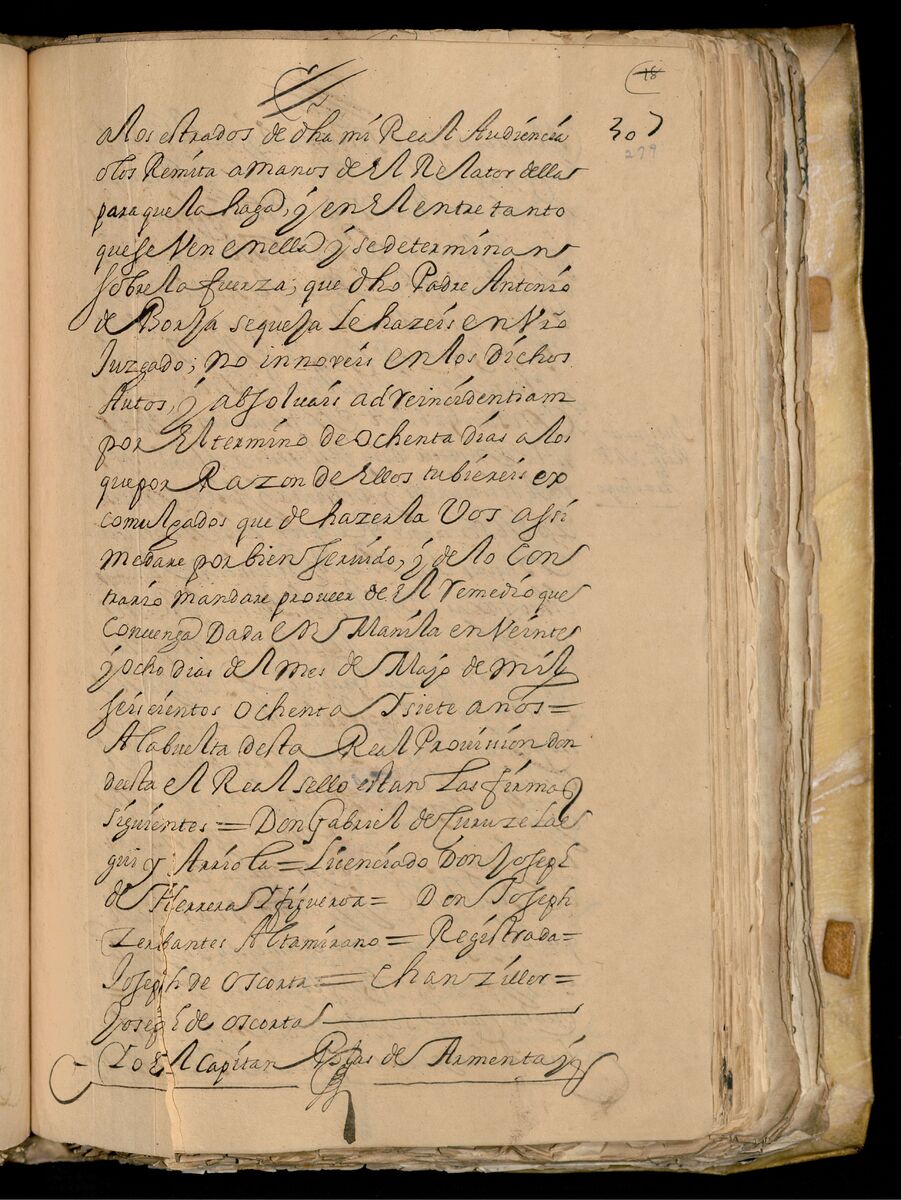 18
307
279
a los estrados de dha mi Real Audiencia
o los Remita a manos de el Relator della
para que la haga, y en el entre tanto
que se Ven en ella y se determinan
sobre la fuerza, que dho Padre Antonio
de Borja se quexa le hazeis en Vro
Juzgado; no innoveis en los dichos
Autos, y absoluais ad reincidentiam
por el termino de ochenta dias a los
que por Razon de Ellos tubiereis ex
comulgados que de hazerla Vos assi
me dare por bien seruido, y de lo con
trario mandare proveer de el remedio que
convenga Dada en Manila en Veinte
y ocho dias del mes de Mayo de mil
seiscientos ochenta y siete anos =
A la buelta desta Real Prouission don
de esta el Real sello estan las firmas
siguientes = Don Gabriel de Curuzelae
gui y Arriola = Licenciado Don Joseph
de Herrera y figueroa = Don Joseph
Zerbantes Altamirano = Registrada =
Joseph de oscorta = Chanziller =
Joseph de oscorta
Yo El Capitan Blas de Armenta y